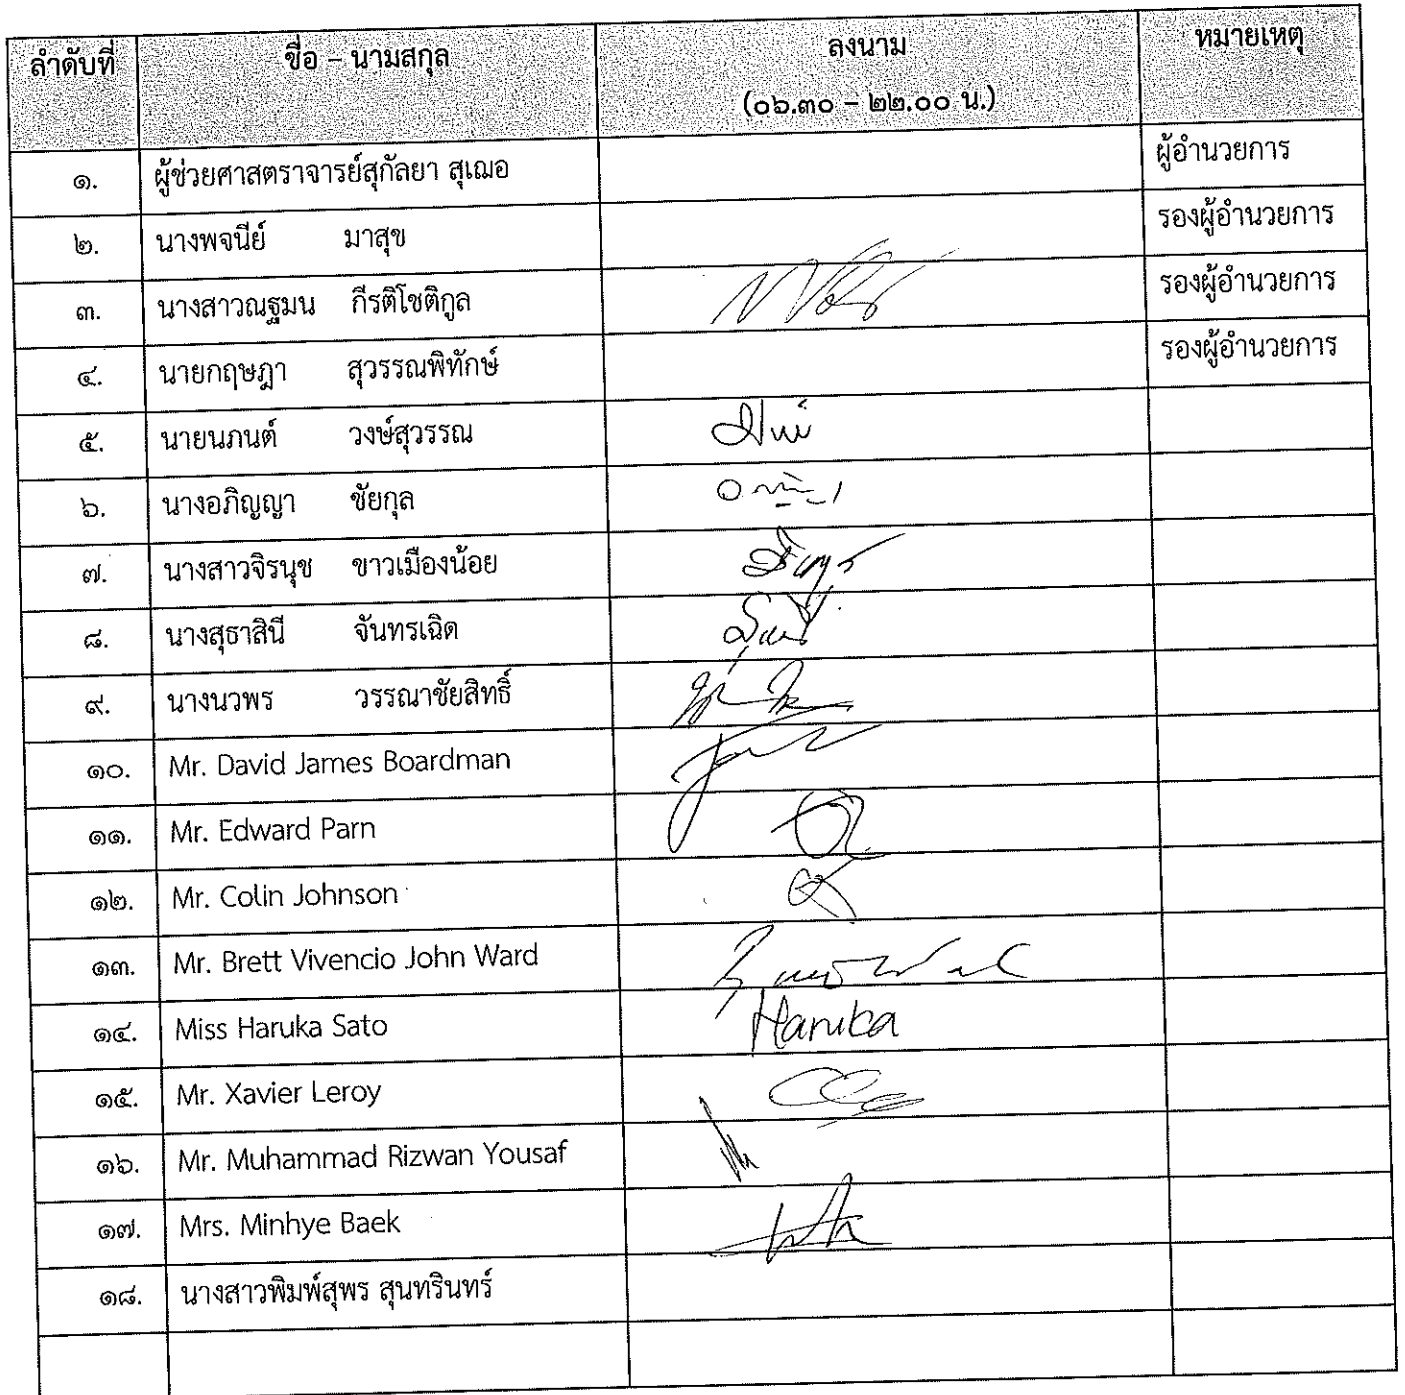 ลำดับที่ ชื่อ – นามสกุล ลงนาม หมายเหตุ
(๐๖.๓๐ – ๒๒.๐๐ น.)
๑. ผู้ช่วยศาสตราจารย์สุกัลยา สุเฌอ ผู้อำนวยการ
๒. นางพจนีย์ มาสุข รองผู้อำนวยการ
๓. นางสาวณฐมน กีรติโชติกูล รองผู้อำนวยการ
๔. นายกฤษฎา สุวรรณพิทักษ์ รองผู้อำนวยการ
๕. นายนภนต์ วงษ์สุวรรณ
๖. นางอภิญญา ชัยกุล
๗. นางสาวจิรนุช ขาวเมืองน้อย
๘. นางสุธาสินี จันทรเฉิด
๙. นางนวพร วรรณาชัยสิทธิ์
๑๐. Mr. David James Boardman
๑๑. Mr. Edward Parn
๑๒. Mr. Colin Johnson
๑๓. Mr. Brett Vivencio John Ward
๑๔. Miss Haruka Sato Haruka
๑๕. Mr. Xavier Leroy
๑๖. Mr. Muhammad Rizwan Yousaf
๑๗. Mrs. Minhye Baek
๑๘. นางสาวพิมพ์สุพร สุนทรินทร์